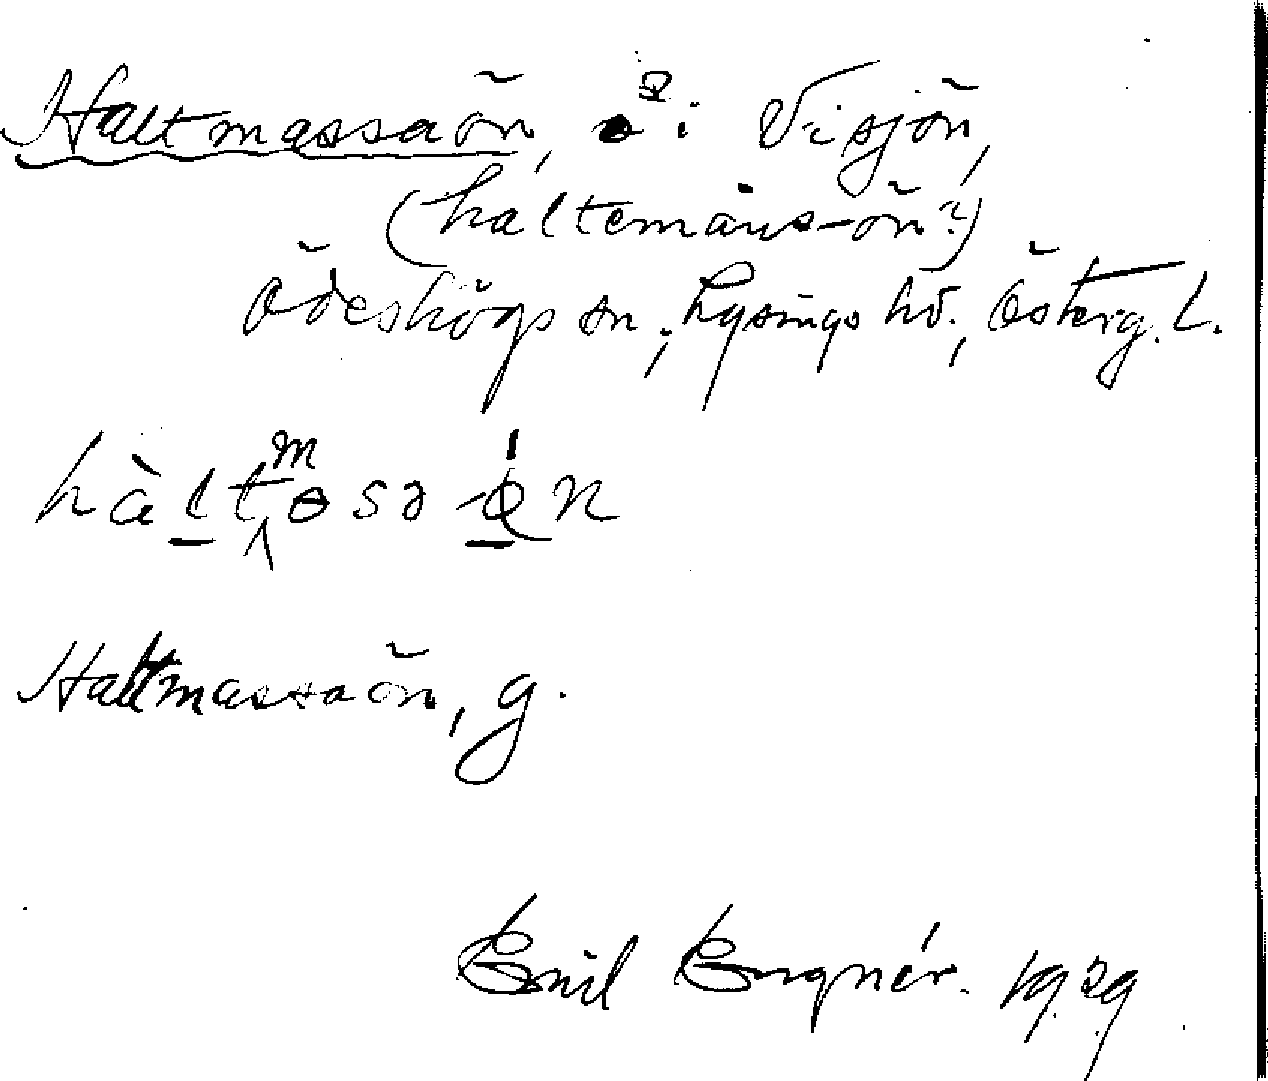 Haltmassaön, ö i Visjön,
(haltemäns-ön?)
Ödeshögs sn, Lysings hd., Österg. L.
hàltmɵsə ǿn
Haltmassaön, g.
Emil Engnér. 1929